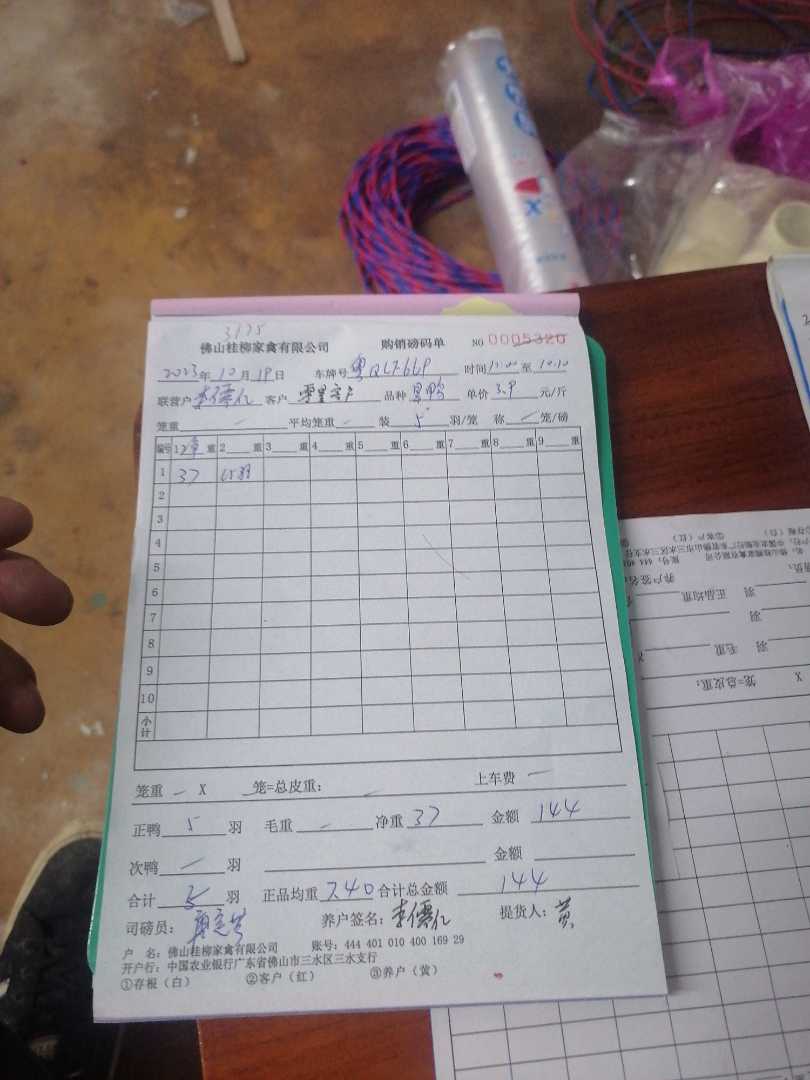 3175
佛山桂柳家禽有限公司 购销磅码单 NO 0005320
2023年10月19日 车牌号粤QLF669 时间 至10:10
联营户李儒亿 客户零星客户 品种 单价3.9元/斤
笼重 — 平均笼重 — 装 5 羽/笼 称 — 笼/磅
编号 1 重 2 重 3 重 4 重 5 重 6 重 7 重 8 重 9 重
1 37 5羽
2
3
4
5
6
7
8
9
10
小计
笼重 — X — 笼=总皮重: — 上车费 —
正鸭 5 羽 毛重 — 净重 37 金额 144
次鸭 — 羽 金额
合计 5 羽 正品均重 7.40 合计总金额 144
司磅员: 养户签名:李儒亿 提货人:黄
户 名:佛山桂柳家禽有限公司 账号:444 401 010 400 169 29
开户行:中国农业银行广东省佛山市三水区三水支行
①存根(白) ②客户(红) ③养户(黄)
①存根(白) ②客户(红)
养户签名
羽 正品均重
羽
羽 毛重
X 笼=总皮重: